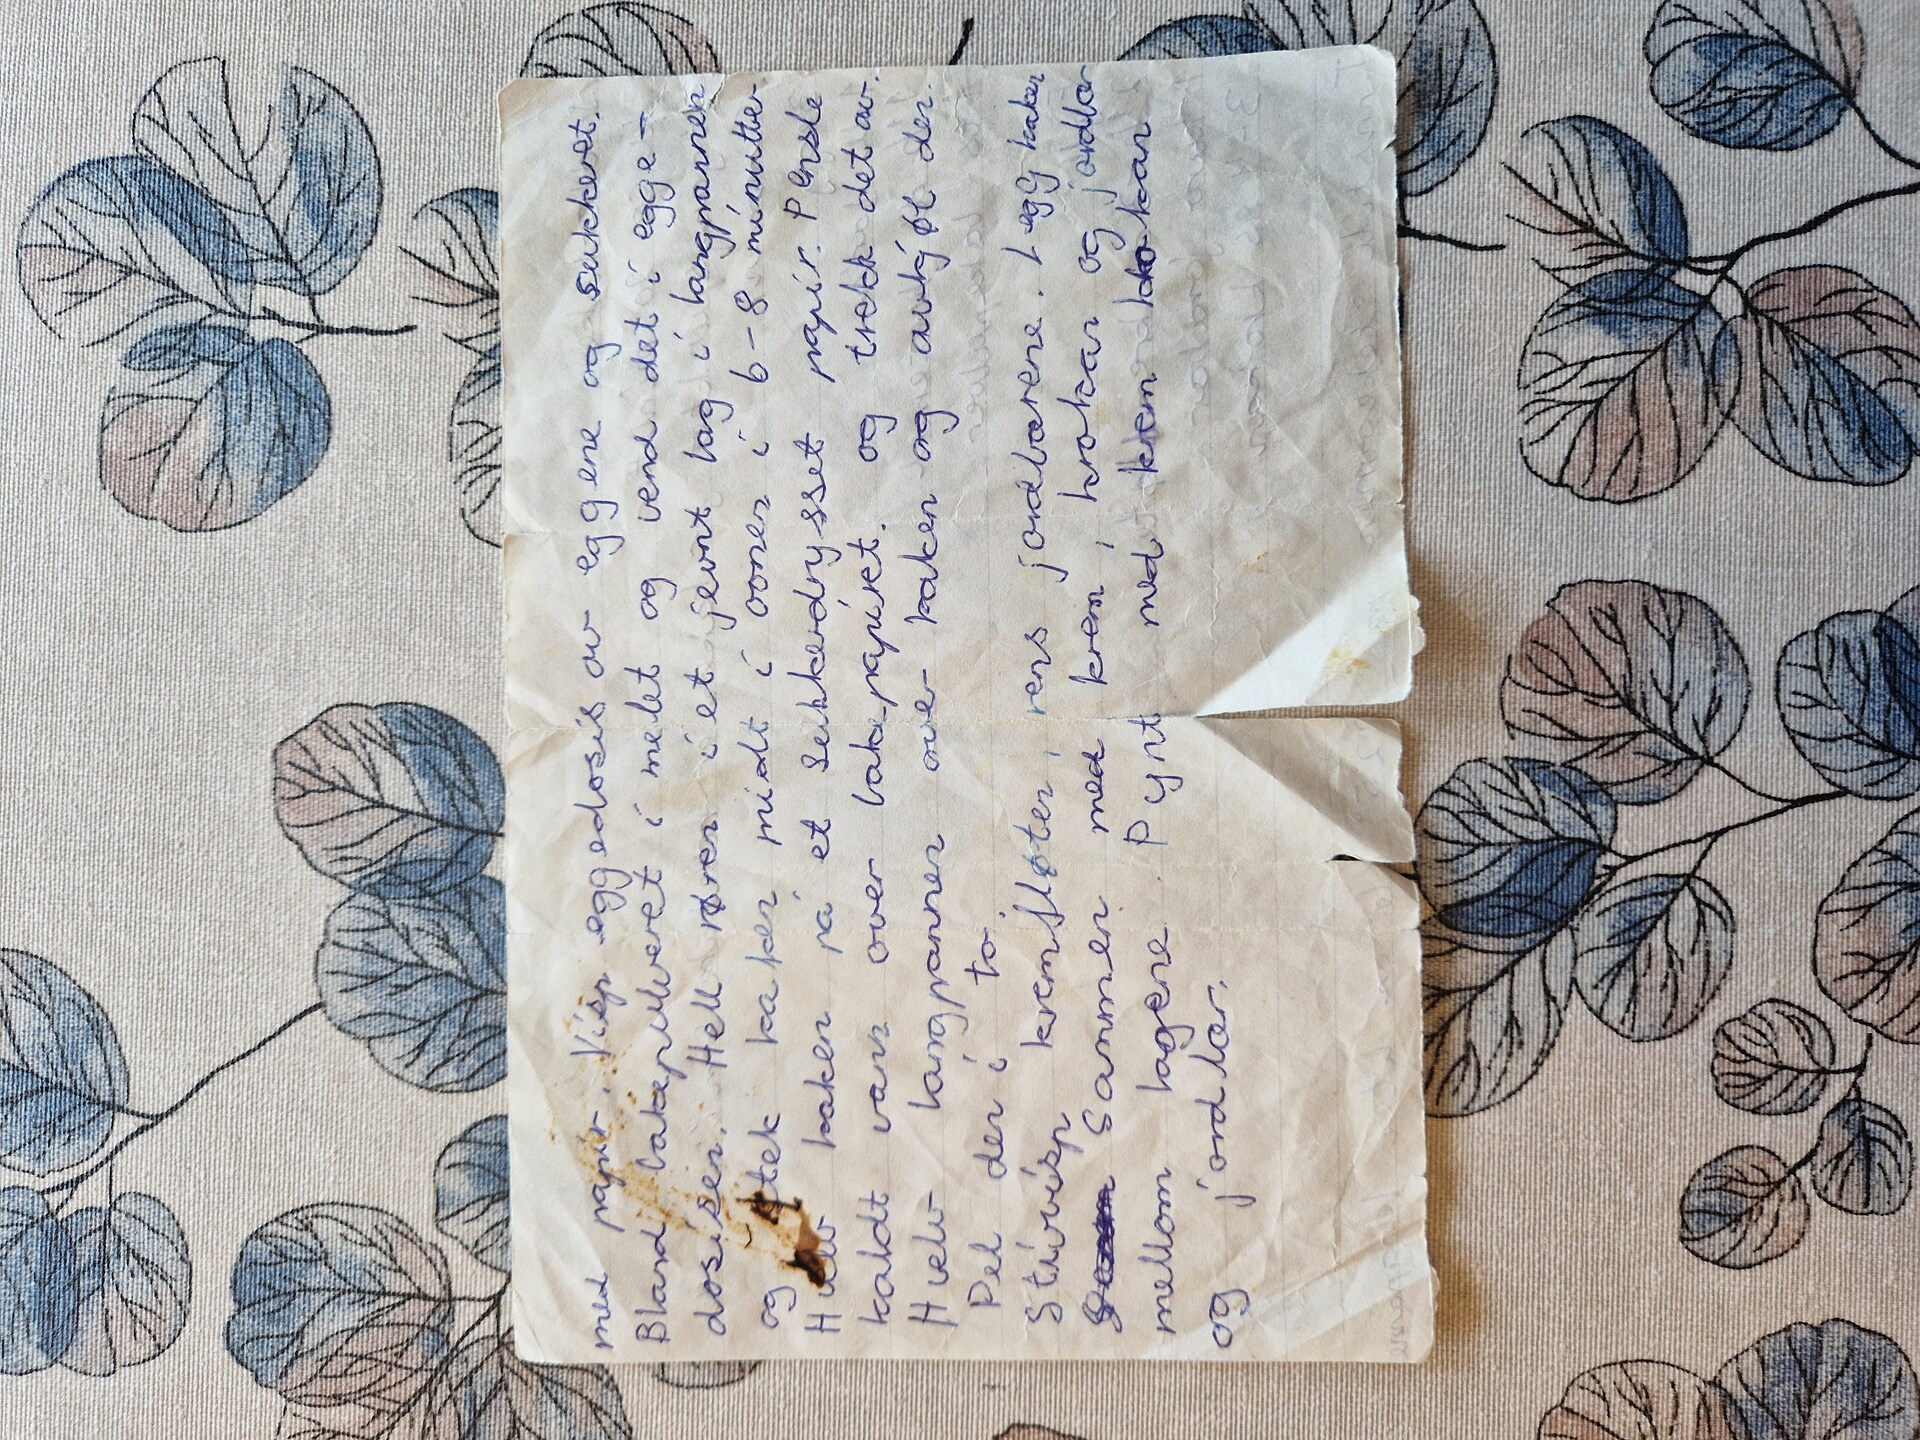 med papir. Visp eggedosis av eggene og sukkeret.
Bland bakepulveret i melet og vend det i egge-
dosisen. Hell røren i et jevnt lag i langpannen
og stek kaken midt i ovnen i 6-8 minutter
Hvelv kaken på et sukkerdrysset papir. Pensle
kaldt vann over bakepapiret. og trekk det av.
Hvelv langpannen over kaken og avkjøl den.
Del den i to.
Stivvisp kremfløten, rens jordbærene. Legg kaken
Sammen med krem, krokan og jordbær
mellom lagene. Pynt med krem krokan
og jordbær.